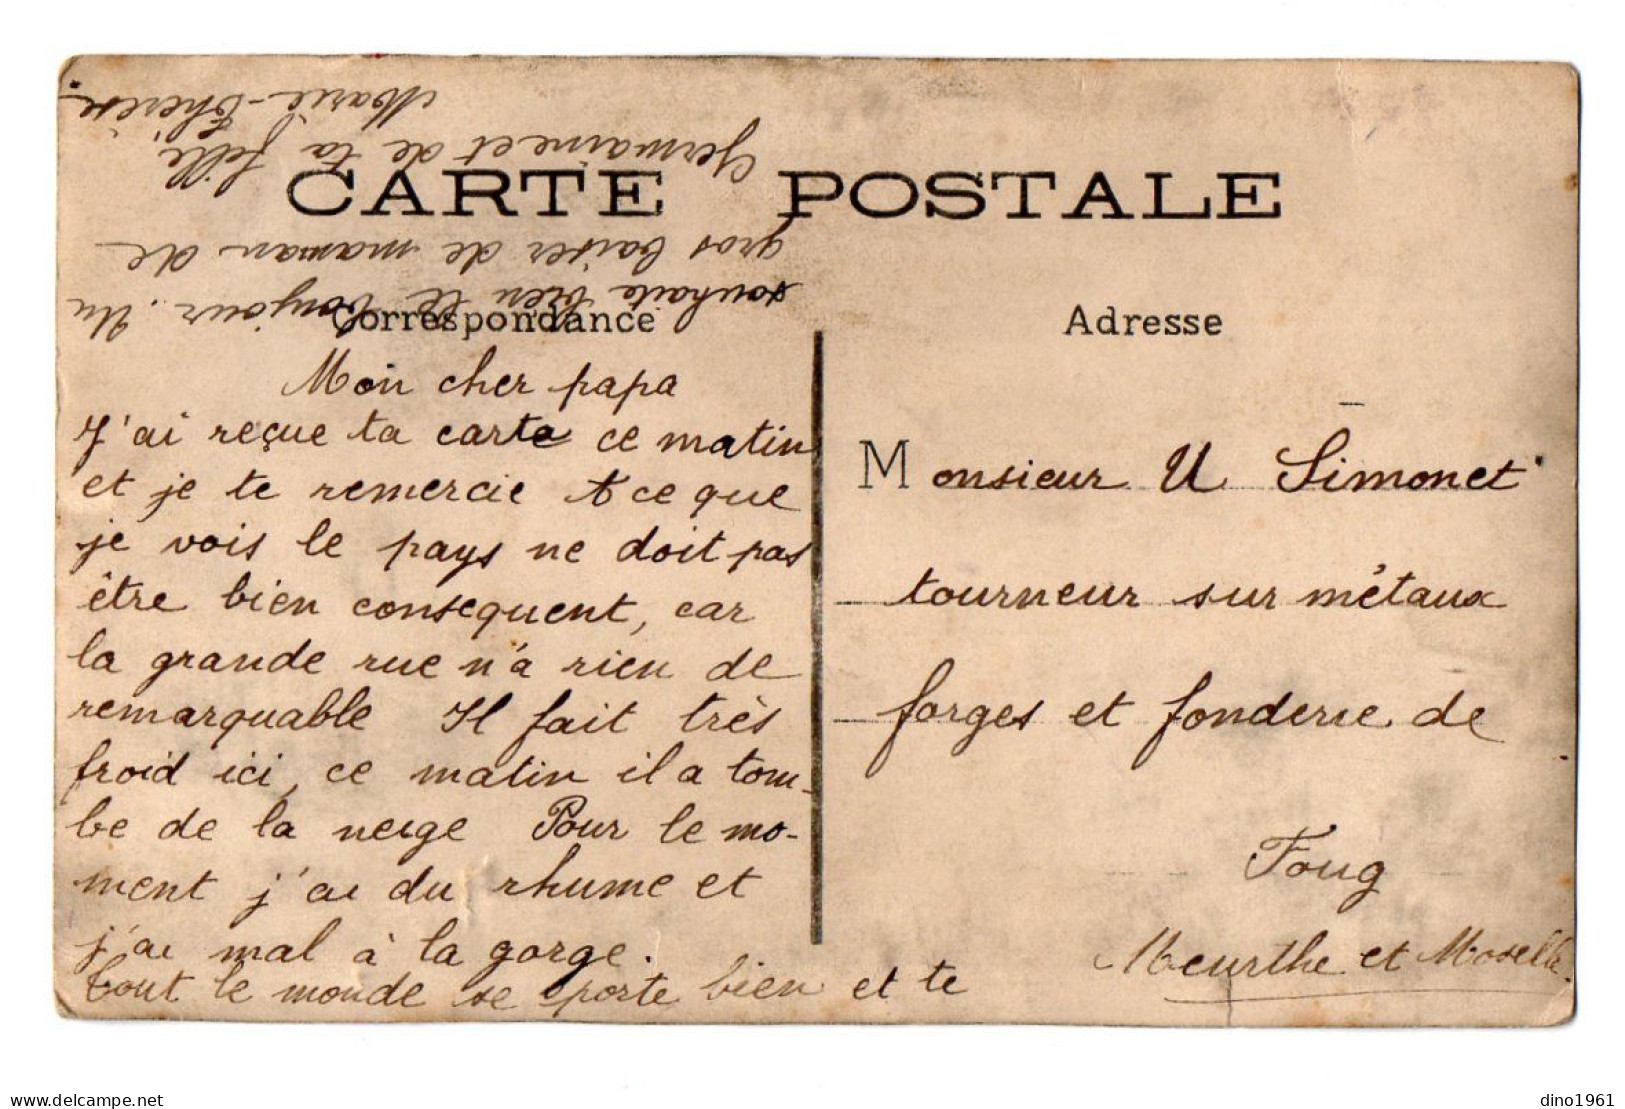 CARTE POSTALE
Correspondance
Mon cher papa
J'ai reçue ta carte ce matin
et je te remercie A ce que
je vois le pays ne doit pas
être bien consequent, car
la grande rue n'a rien de
remarquable Il fait très
froid ici, ce matin il a tom-
be de la neige Pour le mo-
ment j'ai du rhume et
j'ai mal à la gorge.
tout le monde se porte bien et te
souhaite bien le bonjour. Un
gros baiser de maman de
Germaine et de ta fille,
Marie-Therèse.
Adresse
Monsieur U Simonet
tourneur sur métaux
forges et fonderie de
Foug
Meurthe et Moselle.
dino1961